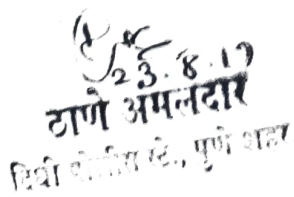 23.8.19
ठाणे अमलदार
दिघी पोलीस स्टे., पुणे शहर